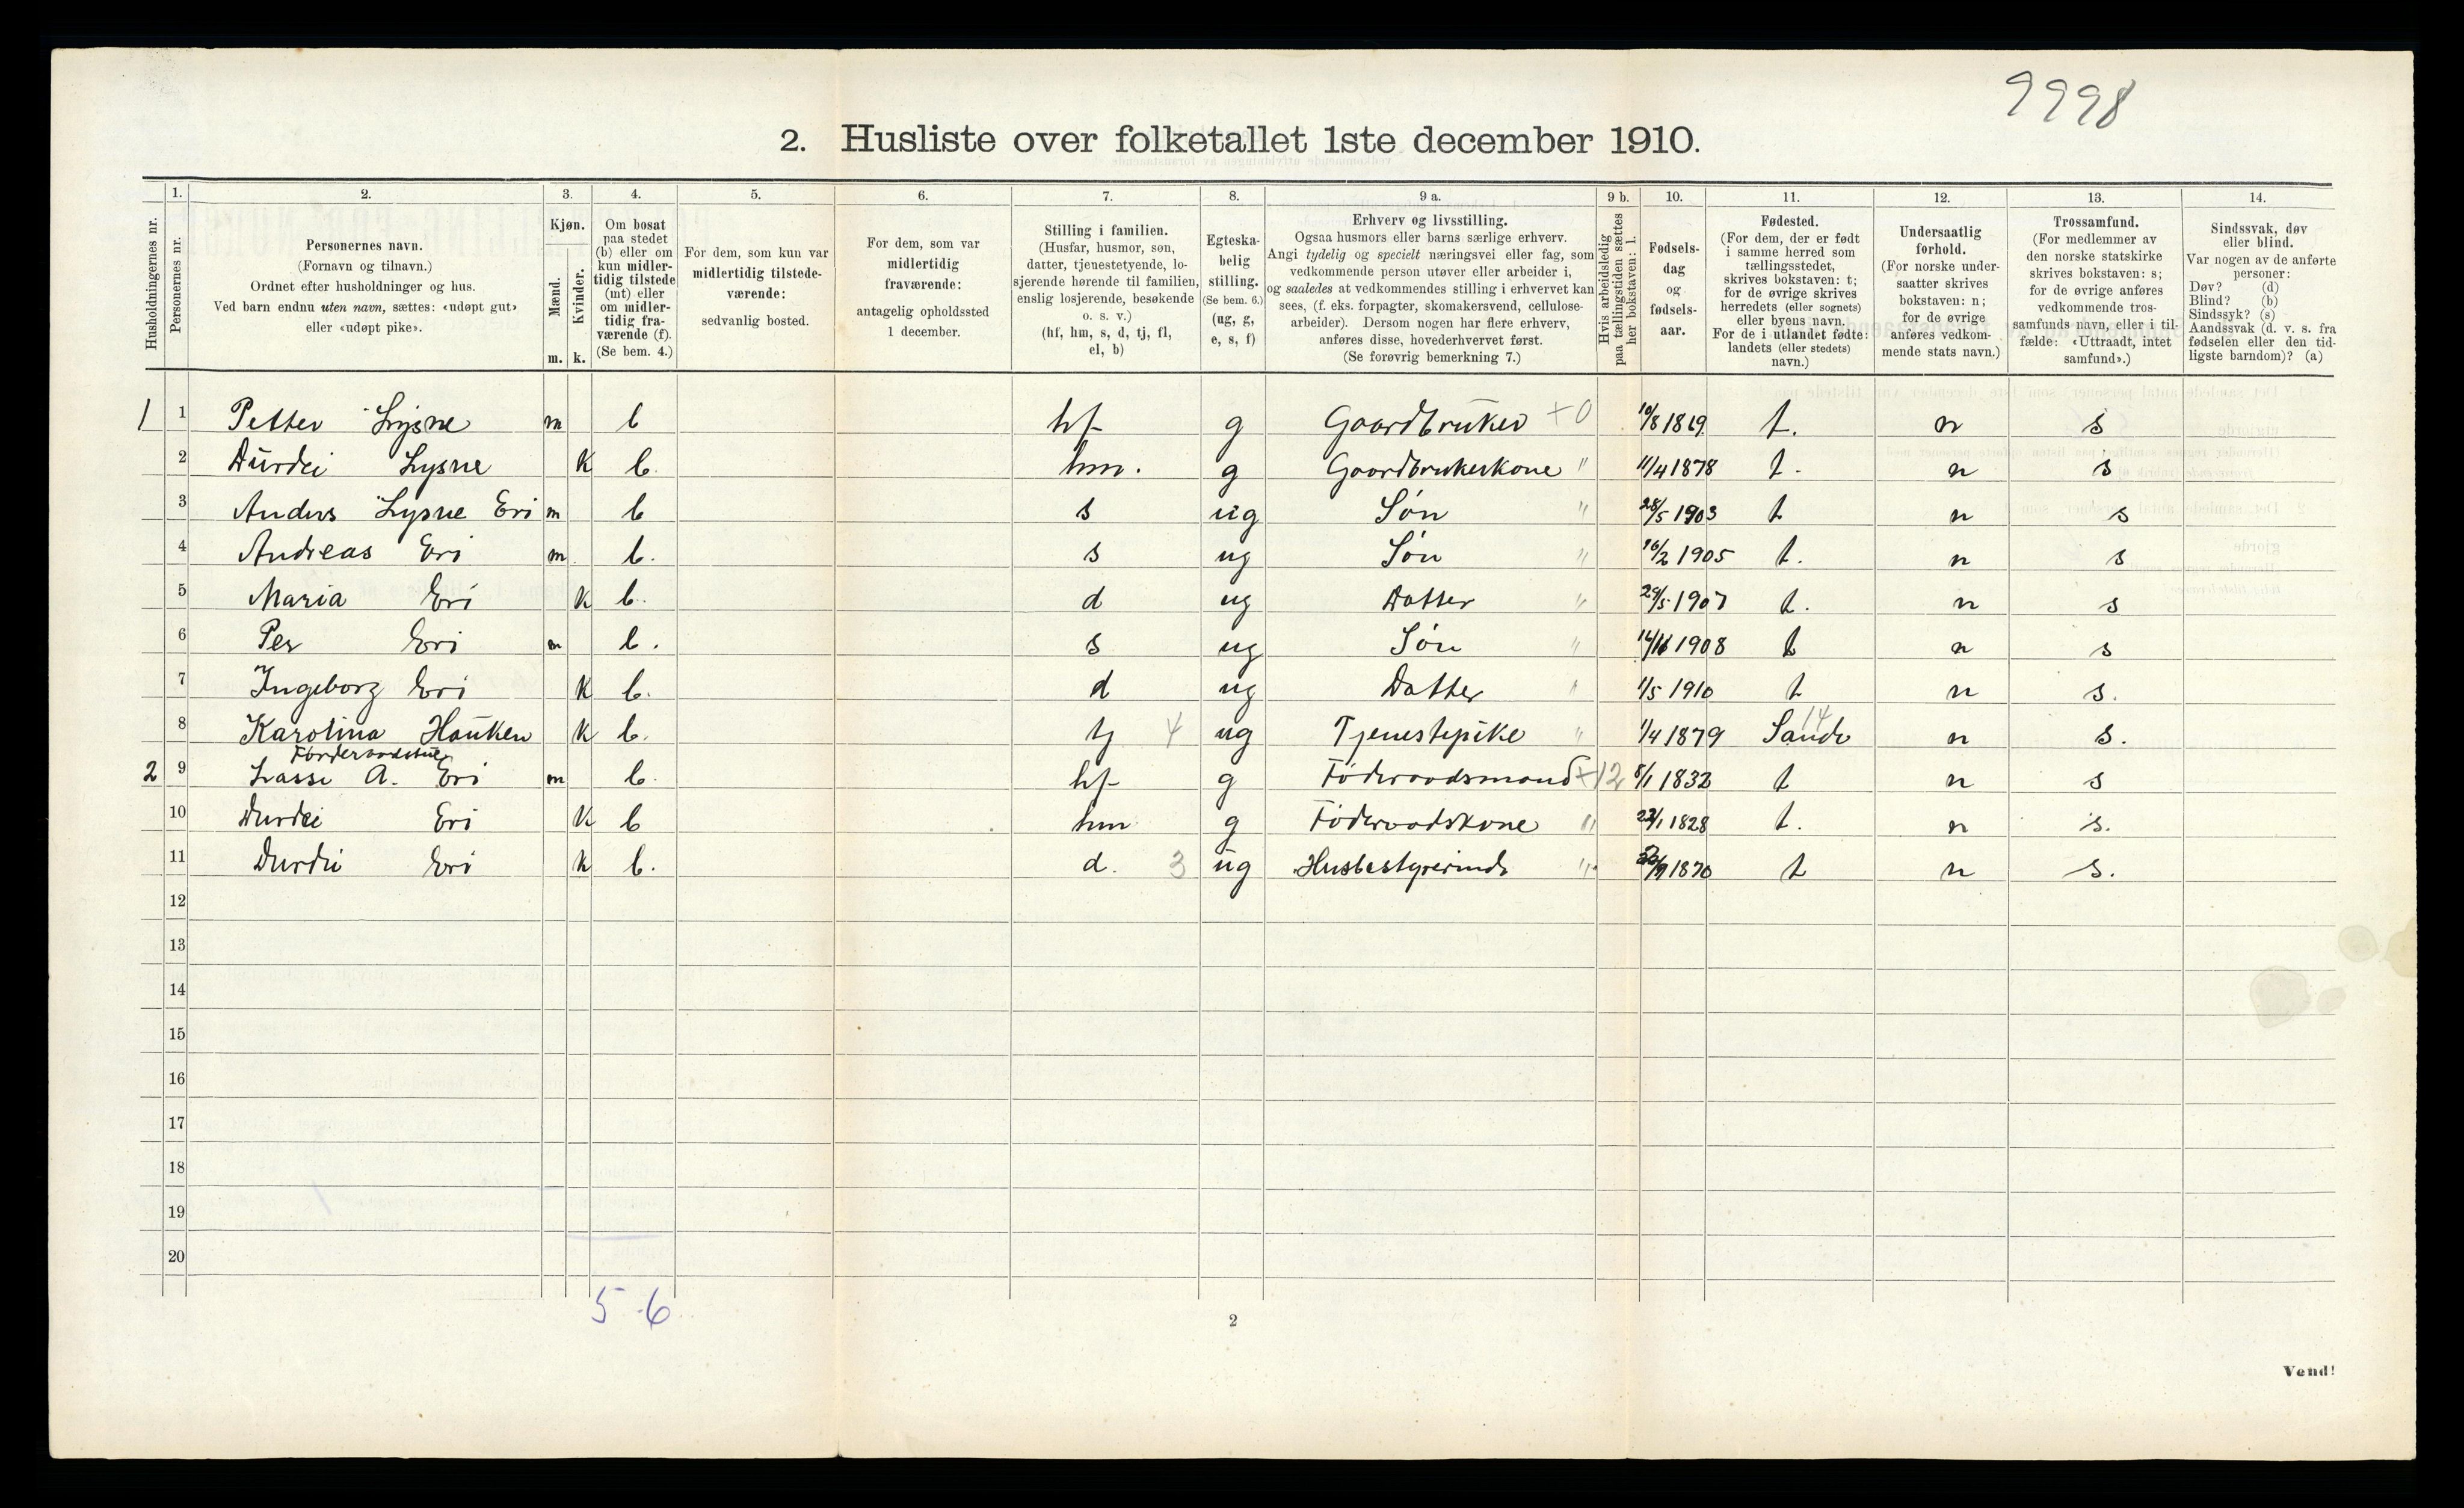 9998
2. Husliste over folketallet 1ste december 1910.
Husholdningernes nr.
1.
Personernes nr.
2.
Personernes navn.
(Fornavn og tilnavn.)
Ordnet efter husholdninger og hus.
Ved barn endnu uten navn, sættes: «udøpt gut»
eller «udøpt pike».
3.
Kjøn.
Mænd.
Kvinder.
m. k.
4.
Om bosat
paa stedet
(b) eller om
kun midler-
tidig tilstede
(mt) eller
om midler-
tidig fra-
værende (f).
(Se bem. 4.)
5.
For dem, som kun var
midlertidig tilstede-
værende:
sedvanlig bosted.
6.
For dem, som var
midlertidig
fraværende:
antagelig opholdssted
1 december.
7.
Stilling i familien.
(Husfar, husmor, søn,
datter, tjenestetyende, lo-
sjerende hørende til familien,
enslig losjerende, besøkende
o. s. v.)
(hf, hm, s, d, tj, fl,
el, b)
8.
Egteska-
belig
stilling.
(Se bem. 6.)
(ug, g,
e, s, f)
9 a.
Erhverv og livsstilling.
Ogsaa husmors eller barns særlige erhverv.
Angi tydelig og specielt næringsvei eller fag, som
vedkommende person utøver eller arbeider i,
og saaledes at vedkommendes stilling i erhvervet kan
sees, (f. eks. forpagter, skomakersvend, cellulose-
arbeider). Dersom nogen har flere erhverv,
anføres disse, hovederhvervet først.
(Se forøvrig bemerkning 7.)
9 b.
Hvis arbeidsledig
paa tællingstiden sættes
her bokstaven: l.
10.
Fødsels-
dag
og
fødsels-
aar.
11.
Fødested.
(For dem, der er født
i samme herred som
tællingsstedet,
skrives bokstaven: t;
for de øvrige skrives
herredets (eller sognets)
eller byens navn.
For de i utlandet fødte:
landets (eller stedets)
navn.)
12.
Undersaatlig
forhold.
(For norske under-
saatter skrives
bokstaven: n;
for de øvrige
anføres vedkom-
mende stats navn.)
13.
Trossamfund.
(For medlemmer av
den norske statskirke
skrives bokstaven: s;
for de øvrige anføres
vedkommende tros-
samfunds navn, eller i til-
fælde: «Uttraadt, intet
samfund».)
14.
Sindssvak, døv
eller blind.
Var nogen av de anførte
personer:
Døv? (d)
Blind? (b)
Sindssyk? (s)
Aandssvak (d. v. s. fra
fødselen eller den tid-
ligste barndom)? (a)
1 1 Petter Lysne m b hf g Gaardbruker +0 t. n s
2 Durdei Lysne k b. hm. g Gaardbrukerkone " 11/4 1878 t. n s
3 Anders Lysne Eri m b s ug Søn " 28/5 1903 t n s
4 Andreas Eri m b. s ug Søn " 16/2 1905 t. n s
5 Maria Eri k b. d ug Datter " 29/5 1907 t. n s
6 Per Eri m b. s ug Søn " 1908 t n s
7 Ingeborg Eri k b. d ug Datter " 1/5 1910 t n s.
8 Karolina Hauken k b. tj 4 ug Tjenestepike " 1/4 1879 Sande 14 n s.
2 9 Lasse A. Eri m b. hf g Føderaadsmand +12 8/1 1832 t n s
10 Durdei Eri k b hm g Føderaadskone " 1828 t. n s.
11 Durdei Eri k b. d. 3 ug Husbestyrerinde " 1870 t n s.
12
13
14
15
16
17
18
19
20
5-6
2
Vend!